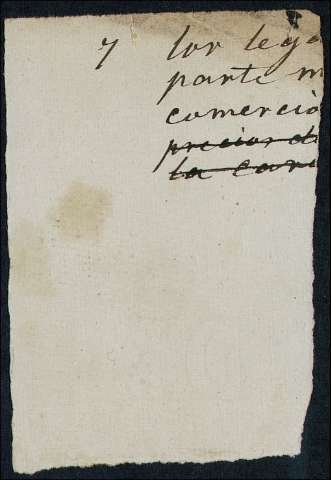 y los lega
parte m
comercio
precios de
la cari